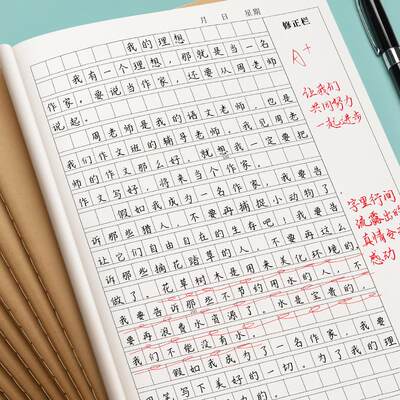 月 日 星期
修正栏
我的理想
我有一个理想,那就是当一名
作家。要说当作家,还要从周老师
说起。
周老师是我的语文老师,也是
我们作文班的辅导老师,我见周老
师的作文那么好,就想我一定要把
作文写好,将来当个作家。
假如我成为一名作家,我要告
诉那些猎人,不要再捕捉小动物了,
让它们自由自在的生存吧!我要告
诉那些摘花踏草的人,不要再这么
做了。花草树木是用来美化环境的。
我要告诉那些不节约用水的人,不
要再浪费水资源了。水是宝贵的,
我们不能没有水。
假如我成为了一名作家,我要
用笔写下美好的一切。为了我的理
A+
让我们
共同努力
一起进步
字里行间
流露出的
真情令
感动